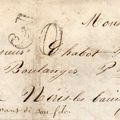 Mons
sieur Chabot
Boulanger
Néris les bains
avant de son fils